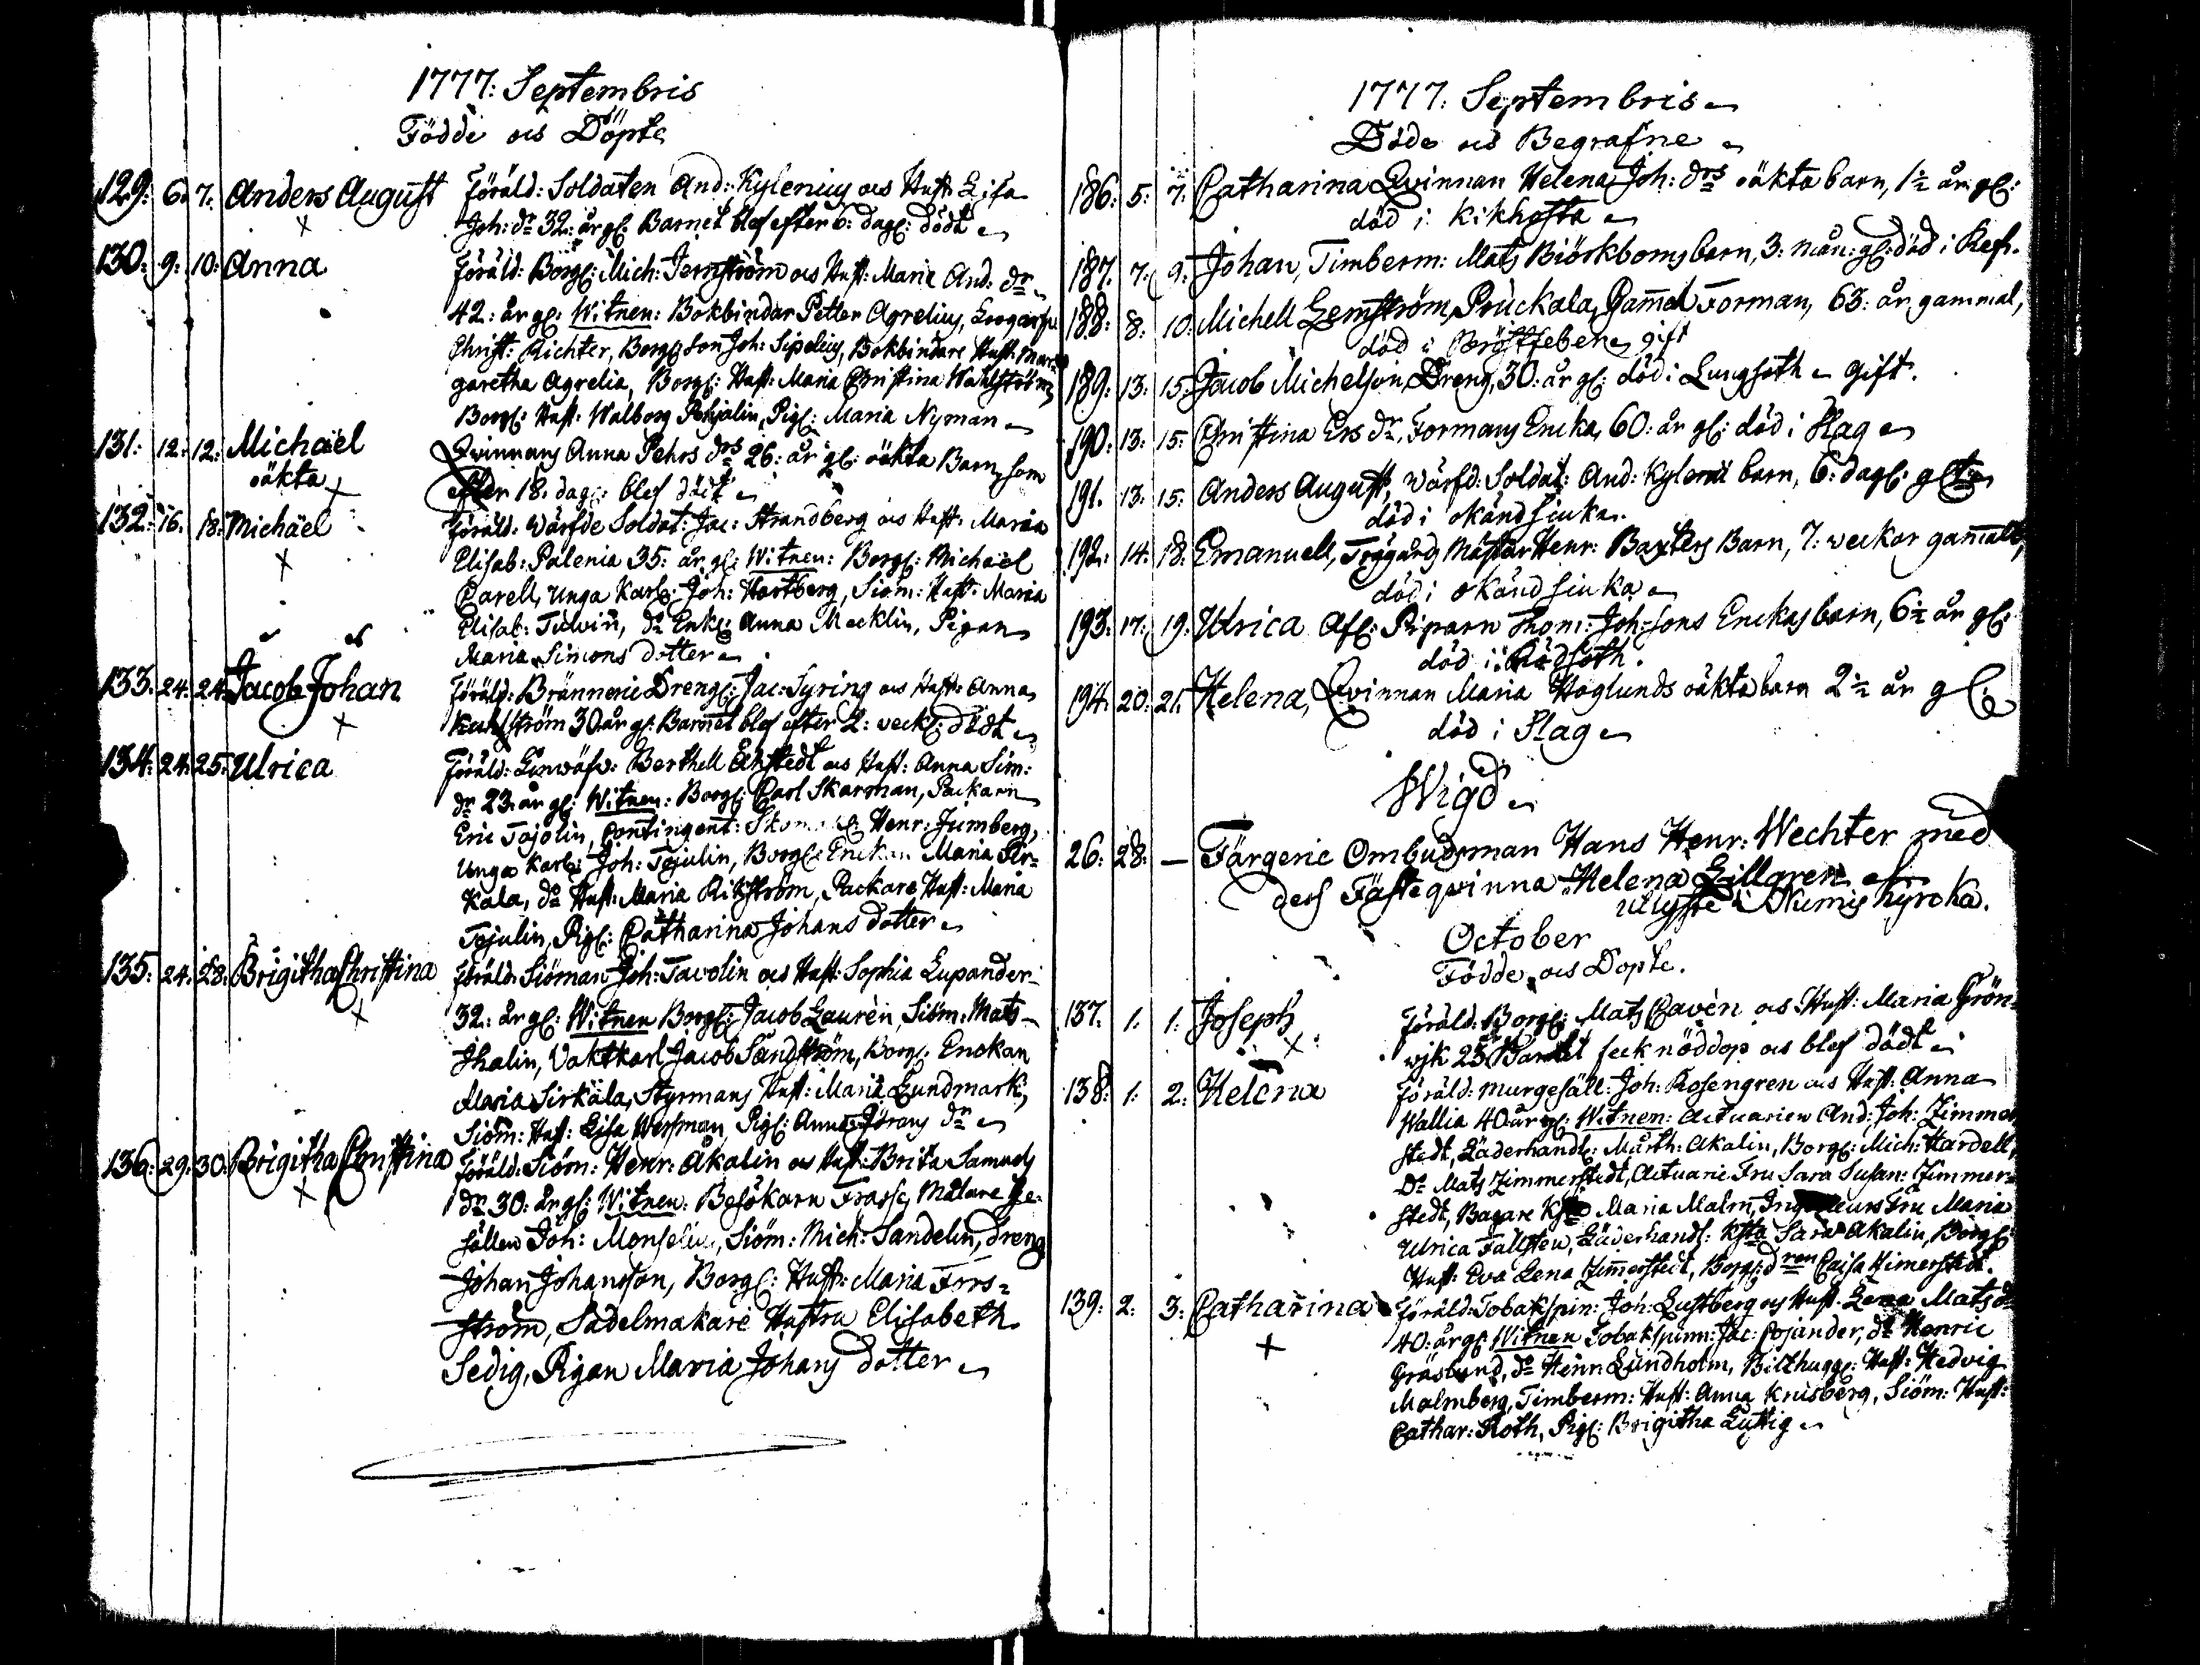 1777: Septembris
Födde och Döpte
129: 6. 7. Anders August Föräld: Soldaten And: Kylenius och Hust: Lisa
Joh: dr 32: år gl: Barnet blef efter 6: dag: dödt
130: 9: 10: Anna Föräld: Borg: Mich: Jernström och Hust: Maria And: dr
42: år gl: Witnen: Bokbindar Petter Agrelius,
Christ: Richter, Borg: Son Joh: Sipelius, Bokbindare Hust: Mar-
garetha Agrelia, Borg: Hust: Maria Christina Wahlström,
Borg: Hust: Walborg Pohjalin, Pig: Maria Nyman
131: 12: 12: Michaël Qvinnans Anna Pehrs drs 26: år gl: oäkta Barn, som
oäkta efter 18. dag: blef dödt
132: 16. 18: Michäel Föräld: Wärfde Soldat: Jac: Strandberg och Hust: Maria
Elisab: Palenia 35: år gl: Witnen: Borg: Michäel
Carell, Unga Karl: Joh: Hartberg, Siöm: Hust: Maria
Elisab: Tidvin, do Enk: Anna Mecklin, Pigan
Maria Simons dotter
133: 24: 24: Jacob Johan Föräld: Bränneri Dreng: Jac: Syring och Hust: Anna
30 år gl: Barnet blef efter 2: veck: dödt
134: 24: 25: Ulrica Föräld: Linwäfv: Berthell Ekstedt och Hust: Anna Sim:
dr 23: år gl: Witnen: Borg: Carl Skarman, Packarn
Eric Tojolin, Contingent: Henr: Jumberg,
Unga Karl: Joh: Tojulin, Borg: Enckan Maria Sir-
kala, do Hust: Maria Ritzström, Packare Hust: Maria
Tojulin, Pig: Catharina Johans dotter
135: 24: 28: Brigitha Christina Föräld: Siöman Joh: Tavolin och Hust: Sophia Lupander
32: år gl: Witnen Borg: Jacob Laurèn, Siöm: Mats
Thalin, Vaktkarl Jacob Sandström, Borg: Enckan
Maria Sirkäla, Styrmans Hust: Maria Lundmark,
Siöm: Hust: Lisa Wessman, Pig: Anna Jörans dr
136: 29: 30: Brigitha Christina Föräld: Siöm: Henr: Åkalin och Hust: Brita Samuels
dr 30: år gl: Witnen: Besökarn Frasse, Målare Ge-
sällen Joh: Siöm: Mich: Sandelin, dreng
Johan Johansson, Borg: Hustr: Maria Fors-
ström, Sadelmakare Hustru Elisabeth
Sedig, Pigan Maria Johans dotter
1777: Septembris
Döde och Begrafne
186: 5: 7: Catharina Qvinnan Helena Joh: drs oäkta barn, 1½ år gl:
död i Kikhosta
187. 7: 9: Johan, Timberm: Mats Biörkboms barn, 3: mån: gl: död i
188: 8: 10: Michell Lemström, Pruckala, Gammal Forman, 63: år gammal,
död i Bröstfeber, gift
189: 13: 15: Jacob Michelson, Dreng, 30: år gl: död i Lungsoth gift.
190: 13: 15: Christina Ers dr, Formans Encka, 60: år gl: död i Slag
191. 13. 15: Anders August, Wärfd: Soldat: And: Kylenii barn, 6: dag: glt
död i okänd siuka.
192: 14: 18: Emanuell, Trägårds Mästar Henr: Baxters Barn, 7: veckor gammalt,
död i okänd siuka
193: 17: 19: Ulrica Afl: Riparn Thom: Joh:sons Enckas barn, 6½ år gl:
död i Rödsoth.
194. 20: 21. Helena, Qvinnan Maria Hoglunds oäkta barn 2½ år gl:
död i Slag
Wigd
26: 28: — Färgerie Ombudsman Hans Henr: Wechter med
dess Fästeqvinna Helena Lillgren
utlyste i Numis kyrcka.
October
Födde och Dopte.
137. 1. 1. Joseph Föräld: Borg: Mats Cavèn och Hust: Maria Grön-
wik 25 Barnet feck nöddop och blef dödt
138: 1: 2: Helena Föräld: Murgesäll: Joh: Rosengren och Hust: Anna
Wallia 40 år gl: Witnen: Actuarien And: Joh: Zimmer
stedt, Läderhandl: Marth: Akalin, Borg: Mich: Hardell,
Do Mats Zimmerstedt, Actuarie Fru Sara Susan: Zimmer-
stedt, Bagare Maria Malm, Fru Maria
Ulrica Fallsten, Läderhandl: Sara Akalin, Borg:
Hust: Eva Lena Zimerstedt, Borg: dren Caisa Zimerstedt.
139: 2. 3: Catharina Föräld: Tobakspin: Joh: Lustberg och Hust: Lena Mats dr
40: år gl: Witnen Tobakspinn: Jac: Pojander, do Henric
Gräslund, do Henr: Lundholm, Bilthugg: Hust: Hedvig
Malmberg, Timberm: Hust: Anna Krusberg, Siöm: Hust:
Cathar: Roth, Pig: Brigitha Luttig